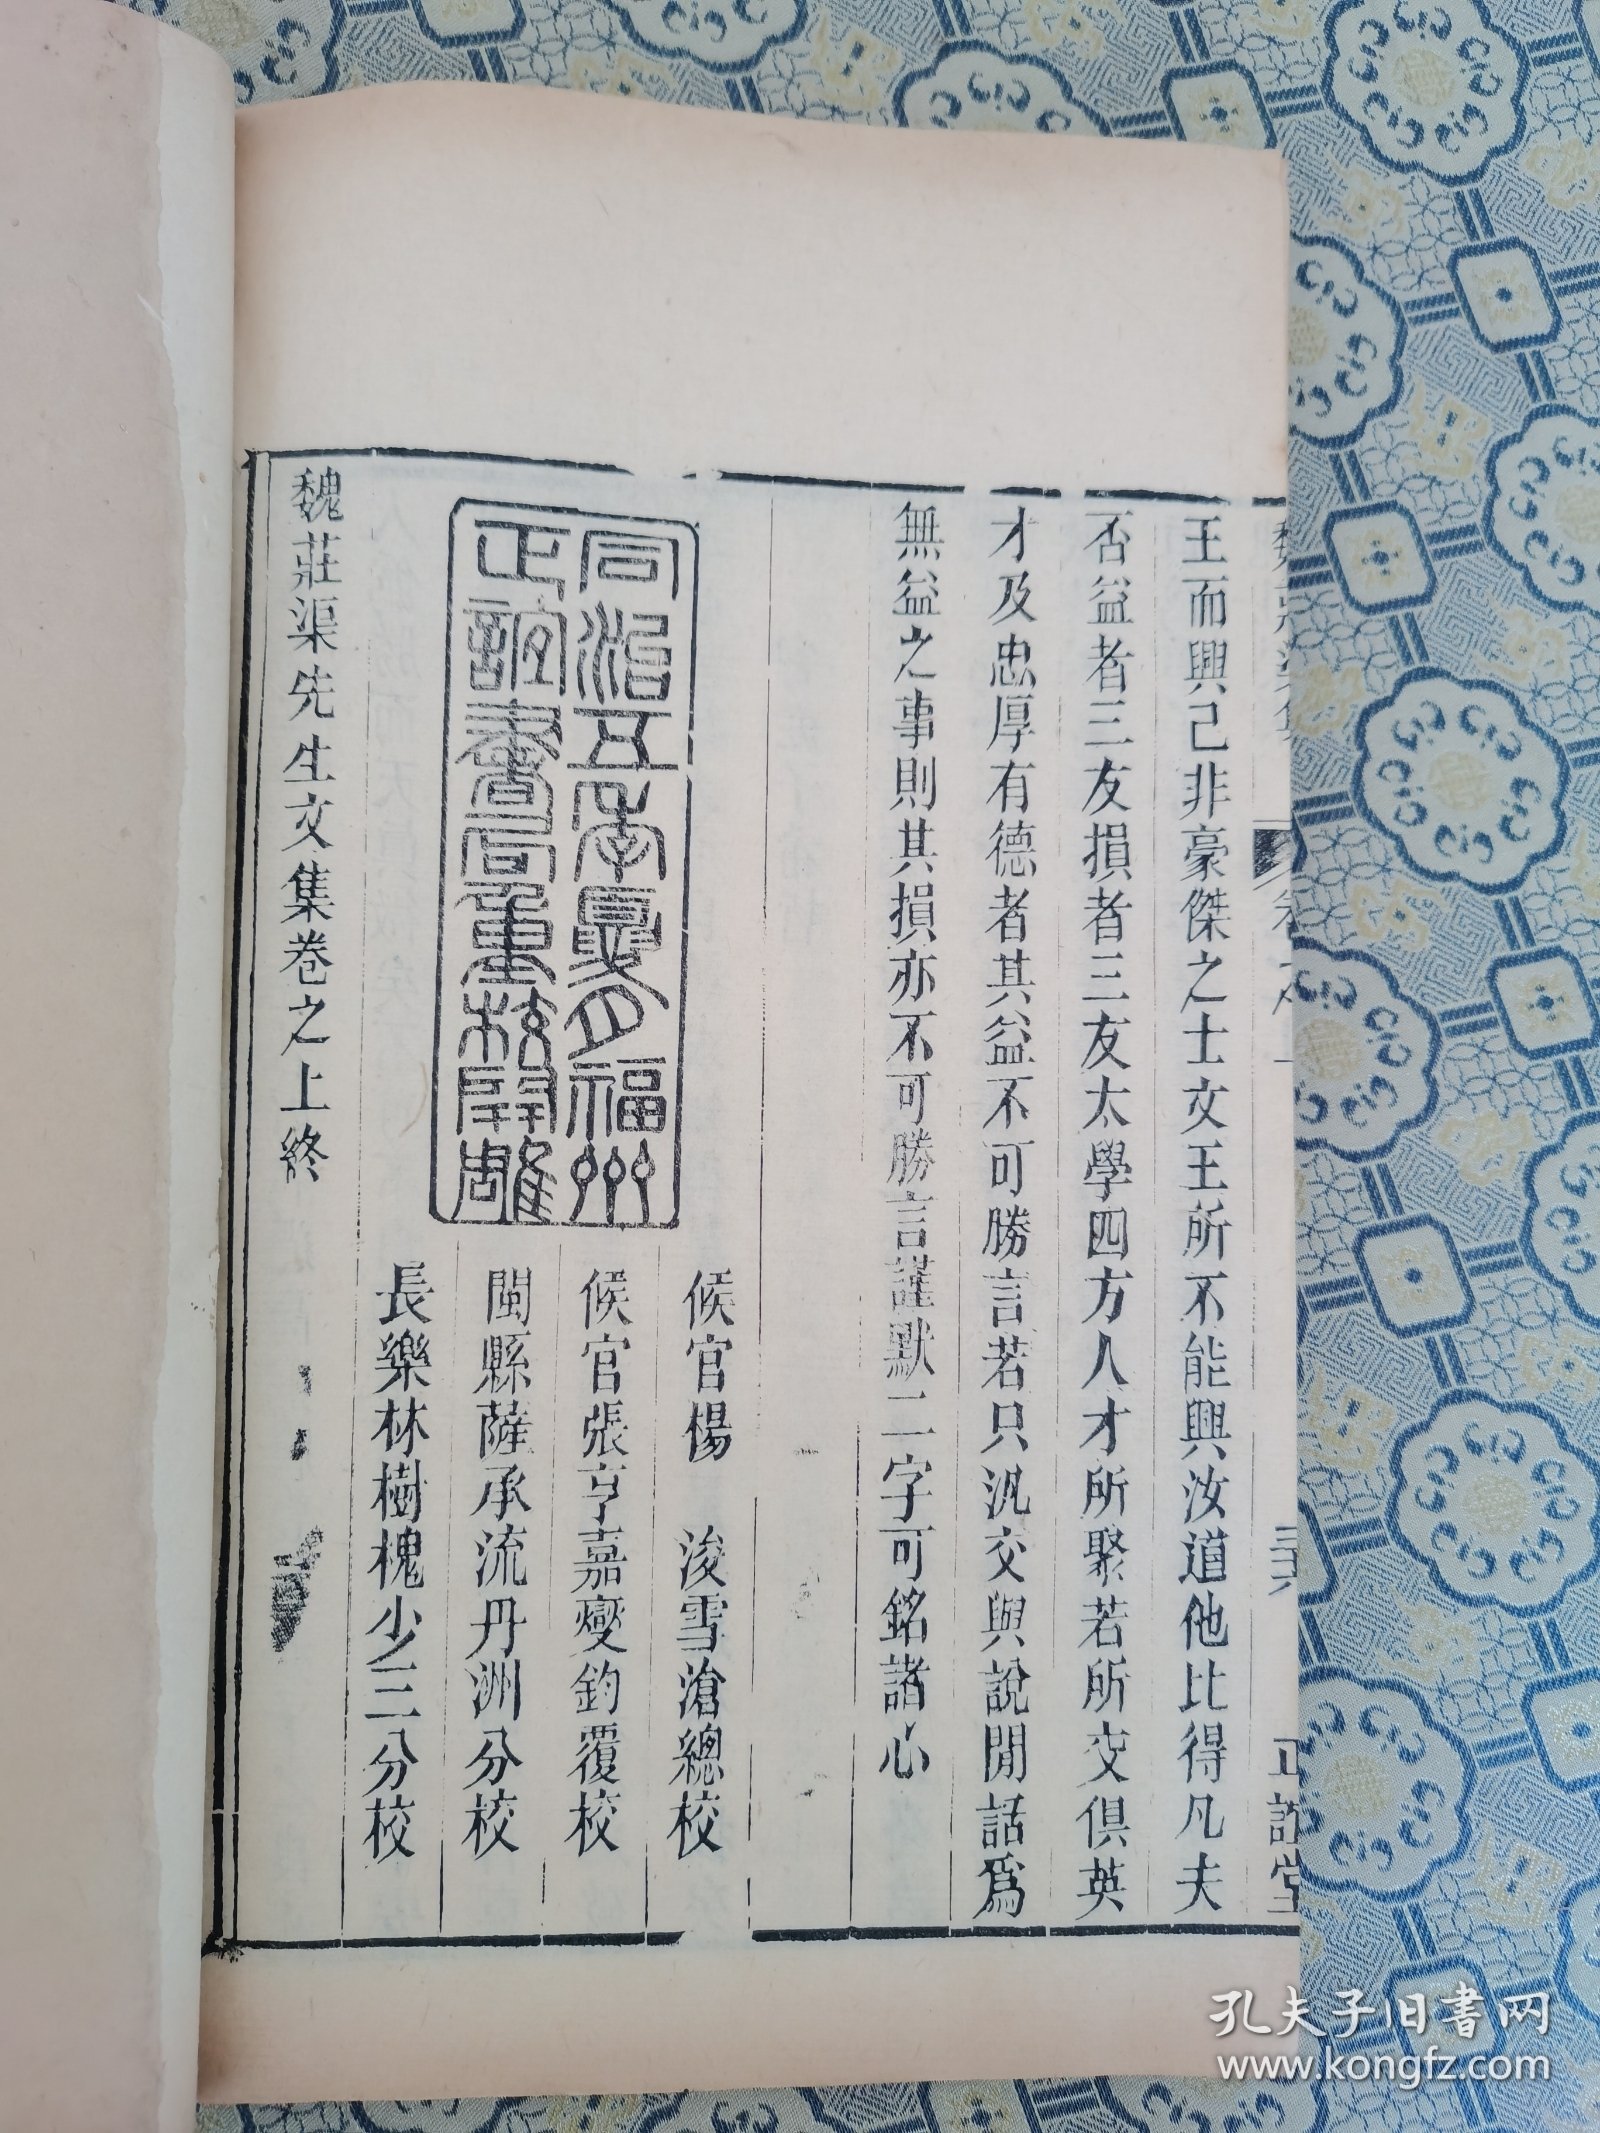 王而興己非豪傑之士文王所不能興汝道他比得凡夫
否益者三友損者三友太學四方人才所聚若所交俱英
才及忠厚有德者其益不可勝言若只汎交與說閒話爲
無益之事則其損亦不可勝言謹默二字可銘諸心
同治五年夏月福州
正誼書局重校開雕
候官楊 浚雪滄總校
候官張亨嘉燮鈞覆校
閩縣薩承流丹洲分校
長樂林樹槐少三分校
魏莊渠先生文集卷之上終
三十六
正誼堂
孔夫子旧书网
www.kongfz.com